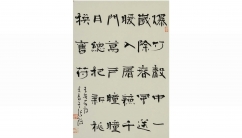 爆竹聲中一
歲除春風送
暖入屠蘇千
門萬戶瞳瞳
日總把新桃
換舊符